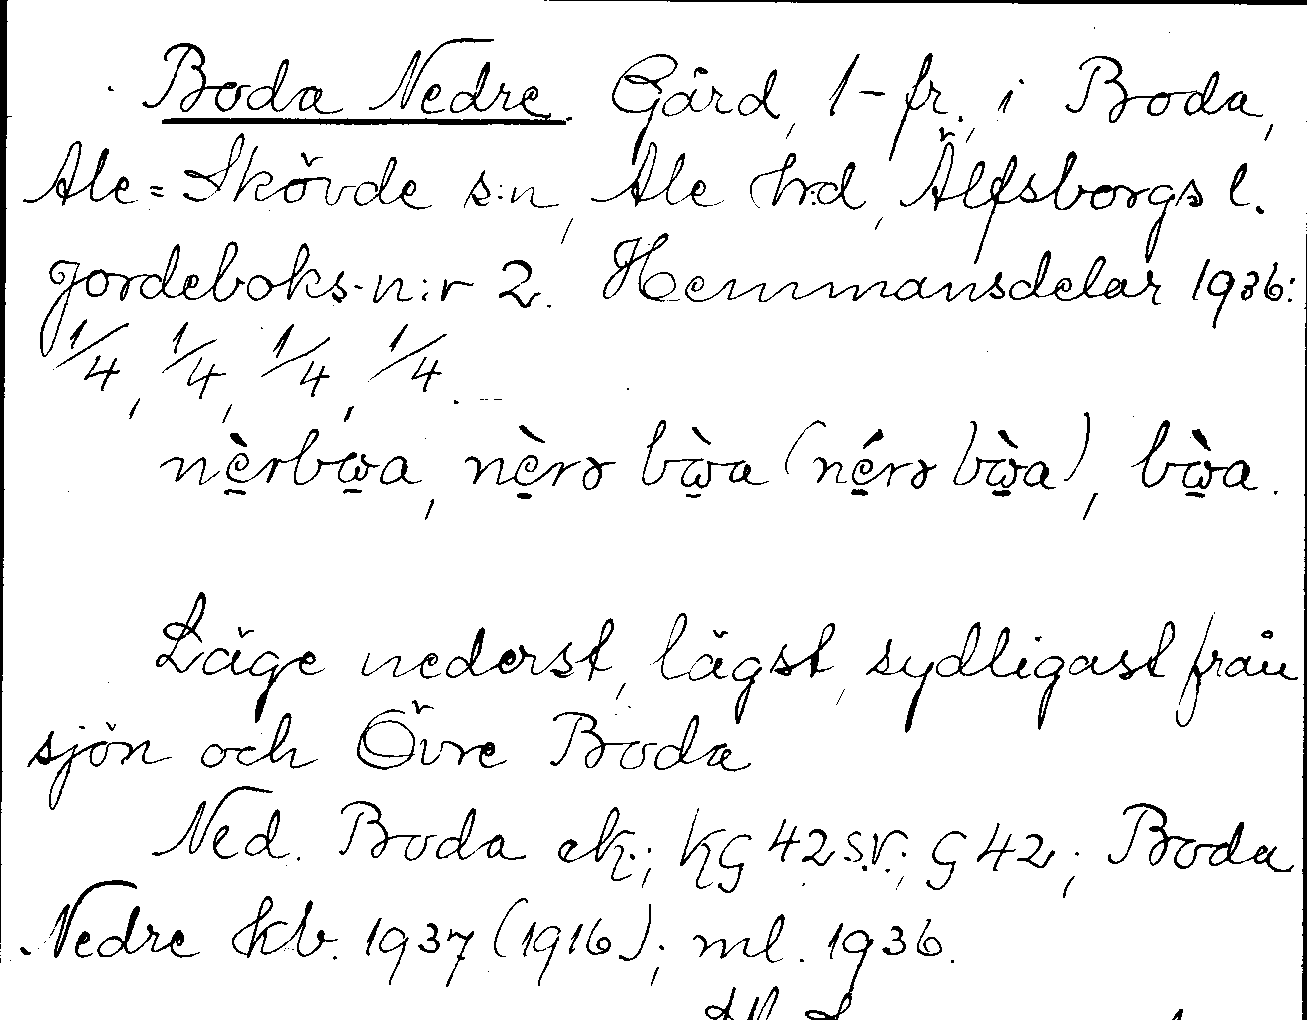 Boda Nedre. Gård, 1-fr., i Boda,
Ale=Skövde s:n, Ale hrd, Älfsborgs l.
Jordeboks-n:r 2. Hemmansdelar 1936:
1/4, 1/4, 1/4, 1/4.
nè̠rbω̠a, nè̠rə bὼ̠a (né̠rə bὼ̠a), bὼ̠a.
Läge nederst, lägst, sydligast från
sjön och Övre Boda
Ned. Boda ek.; KG 42 S.V.; G 42; Boda
Nedre kb. 1937 (1916); ml. 1936.